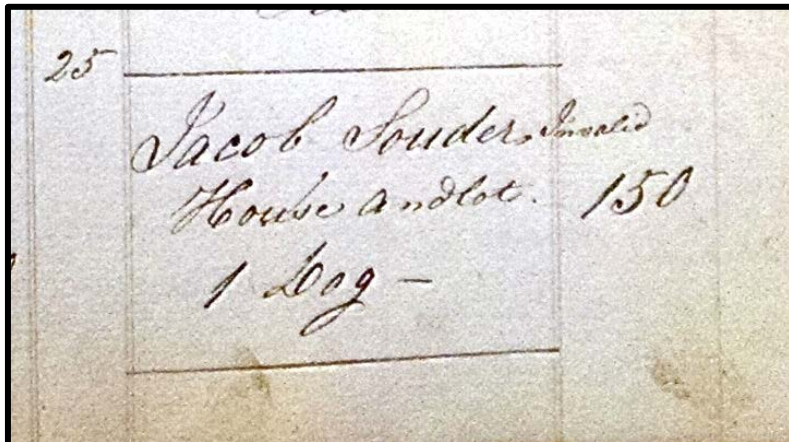 25
Jacob Souder, Invalid
House and lot. 150
1 Dog —